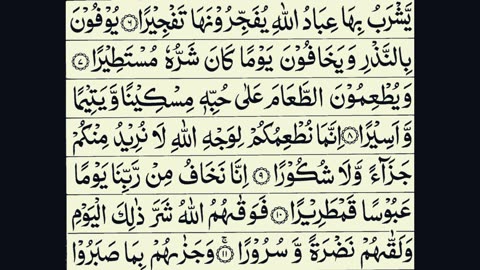 يَّشْرَبُ بِهَا عِبَادُ اللّٰهِ يُفَجِّرُوْنَهَا تَفْجِيْرًا ۝٦ يُوْفُوْنَ
بِالنَّذْرِ وَيَخَافُوْنَ يَوْمًا كَانَ شَرُّهٗ مُسْتَطِيْرًا ۝٧
وَيُطْعِمُوْنَ الطَّعَامَ عَلٰى حُبِّهٖ مِسْكِيْنًا وَّيَتِيْمًا
وَّاَسِيْرًا ۝٨ اِنَّمَا نُطْعِمُكُمْ لِوَجْهِ اللّٰهِ لَا نُرِيْدُ مِنْكُمْ
جَزَآءً وَّلَا شُكُوْرًا ۝٩ اِنَّا نَخَافُ مِنْ رَّبِّنَا يَوْمًا
عَبُوْسًا قَمْطَرِيْرًا ۝١٠ فَوَقٰىهُمُ اللّٰهُ شَرَّ ذٰلِكَ الْيَوْمِ
وَلَقّٰىهُمْ نَضْرَةً وَّ سُرُوْرًا ۝١١ۚ وَجَزٰىهُمْ بِمَا صَبَرُوْا